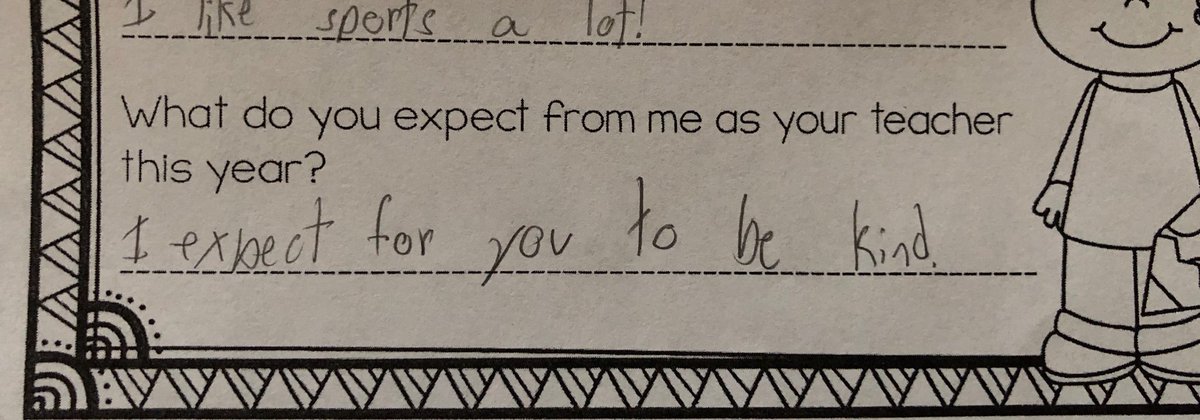 I like sports a lot!
What do you expect from me as your teacher
this year?
I expect for you to be kind.